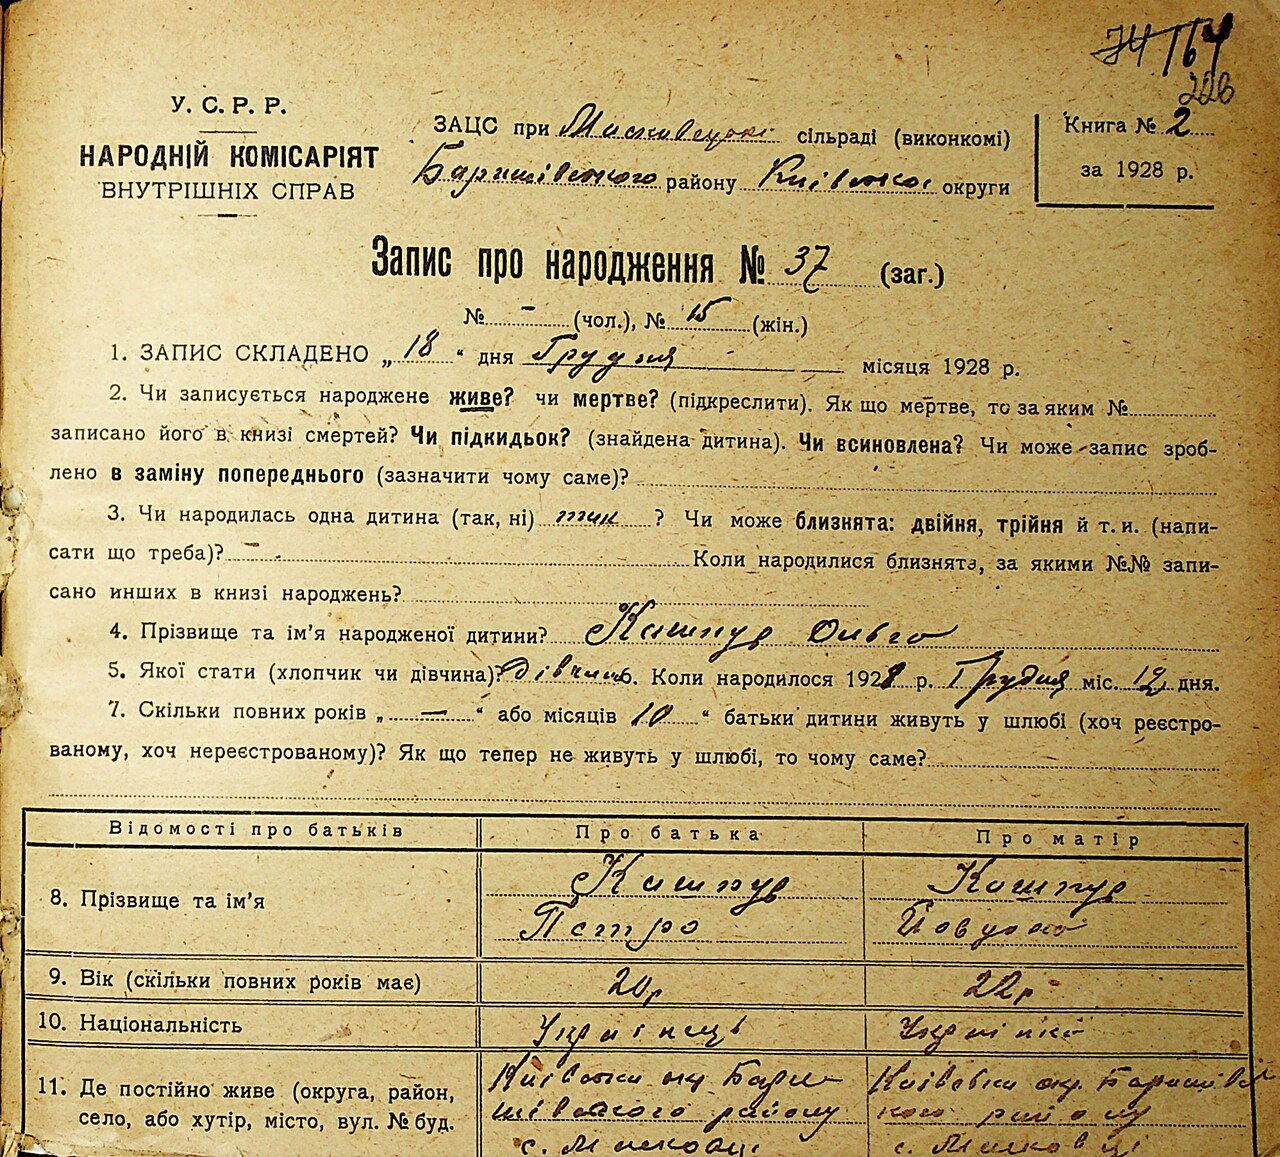 74 164
226
У. С. Р. Р.
НАРОДНІЙ КОМІСАРІЯТ
ВНУТРІШНІХ СПРАВ
ЗАЦС при сільраді (виконкомі)
Баришівського району Київської округи
Книга № 2
за 1928 р.
Запис про народження № 37 (заг.)
№ - (чол.), № 15 (жін.)
1. ЗАПИС СКЛАДЕНО „18“ дня Грудня місяця 1928 р.
2. Чи записується народжене живе? чи мертве? (підкреслити). Як що мертве, то за яким №
записано його в книзі смертей? Чи підкидьок? (знайдена дитина). Чи всиновлена? Чи може запис зроб-
лено в заміну попереднього (зазначити чому саме)?
3. Чи народилась одна дитина (так, ні) так ? Чи може близнята: двійня, трійня й т. и. (напи-
сати що треба)? - Коли народилися близнята, за якими №№ запи-
сано инших в книзі народжень?
4. Прізвище та ім’я народженої дитини? Кашпур Ольга
5. Якої стати (хлопчик чи дівчина)? дівчин 6. Коли народилося 1928 р. Грудня міс. 12 дня.
7. Скільки повних років „ — “ або місяців 10 “ батьки дитини живуть у шлюбі (хоч реєстро-
ваному, хоч нереєстрованому)? Як що тепер не живуть у шлюбі, то чому саме?
Відомості про батьків Про батька Про матір
8. Прізвище та ім’я Кашпур Кашпур
Петро
9. Вік (скільки повних років має) 20р 22р
10. Національність Українець Українка
11. Де постійно живе (округа, район, село, або хутір, місто, вул. № буд.
Київська ок Бари-
шівського району
с.
Київська окр. Баришівсь
кого району
с.